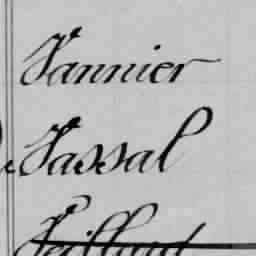 Vannier
Vassal